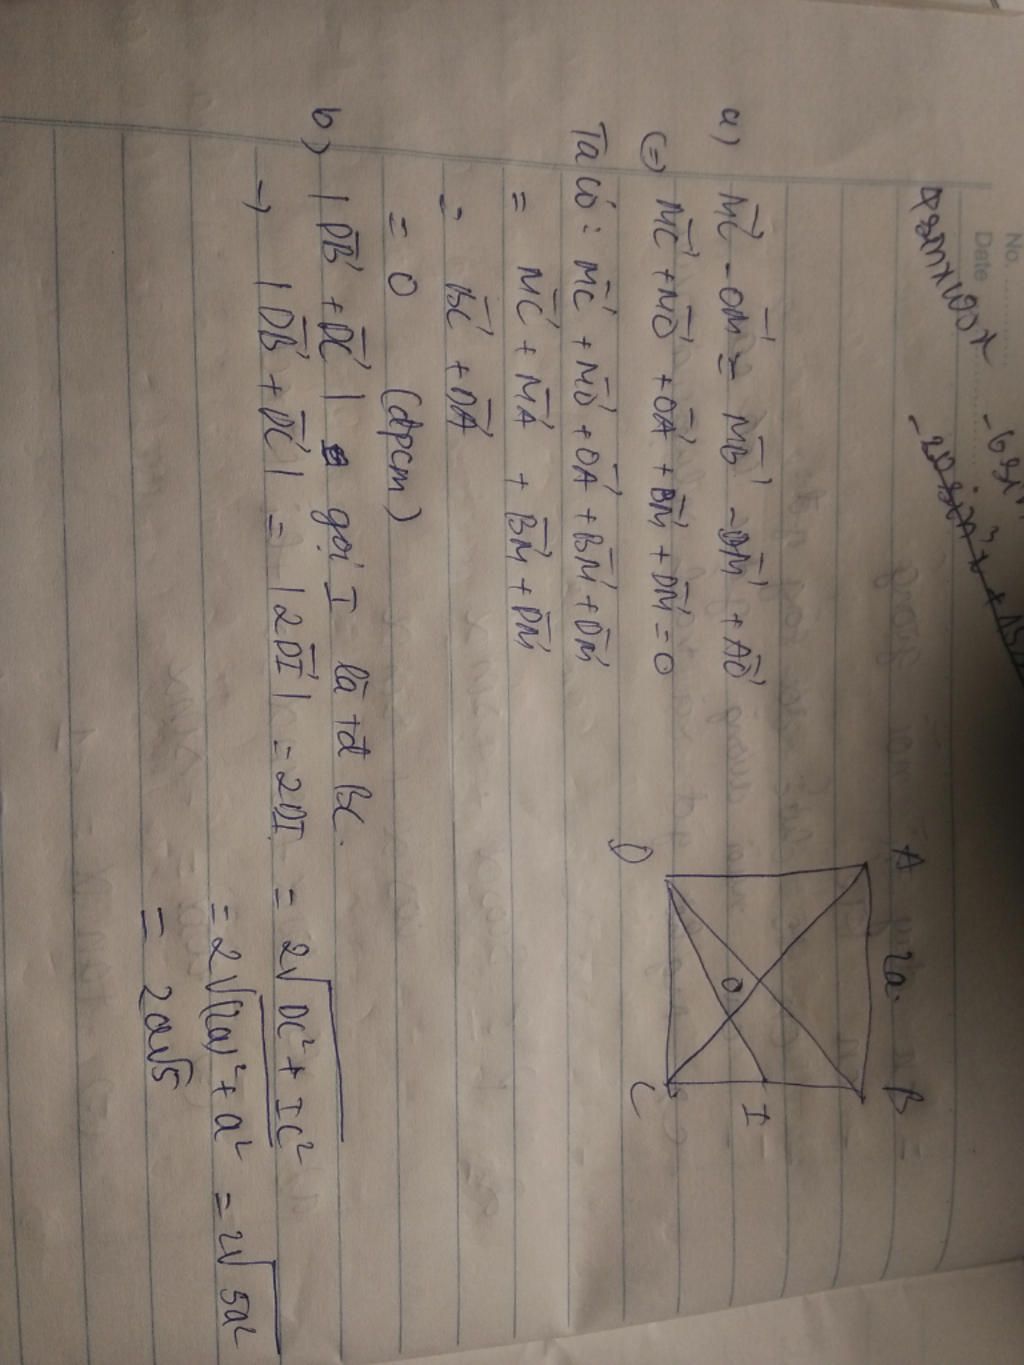 No.
Date
a) M⃗C - O⃗M = M⃗B - D⃗M + A⃗O
(=) M⃗C + M⃗O + O⃗A + B⃗M + D⃗M = 0
Ta có: M⃗C + M⃗O + O⃗A + B⃗M + D⃗M
= M⃗C + M⃗A + B⃗M + D⃗M
= B⃗C + D⃗A
= 0 (đpcm)
b) | D⃗B + D⃗C | gọi I là tđ BC.
→ | D⃗B + D⃗C | = | 2D⃗I | = 2DI = 2√DC² + IC²
= 2√(2a)² + a² = 2√5a²
= 2a√5
A 2a B
O
I
D C